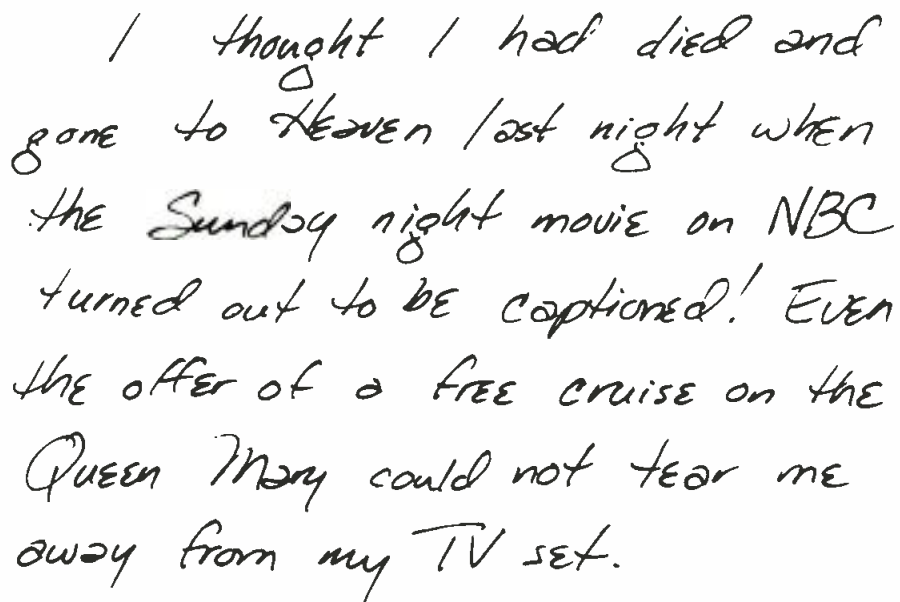 I thought I had died and
gone to Heaven last night when
the Sunday night movie on NBC
turned out to be captioned! Even
the offer of a free cruise on the
Queen Mary could not tear me
away from my TV set.